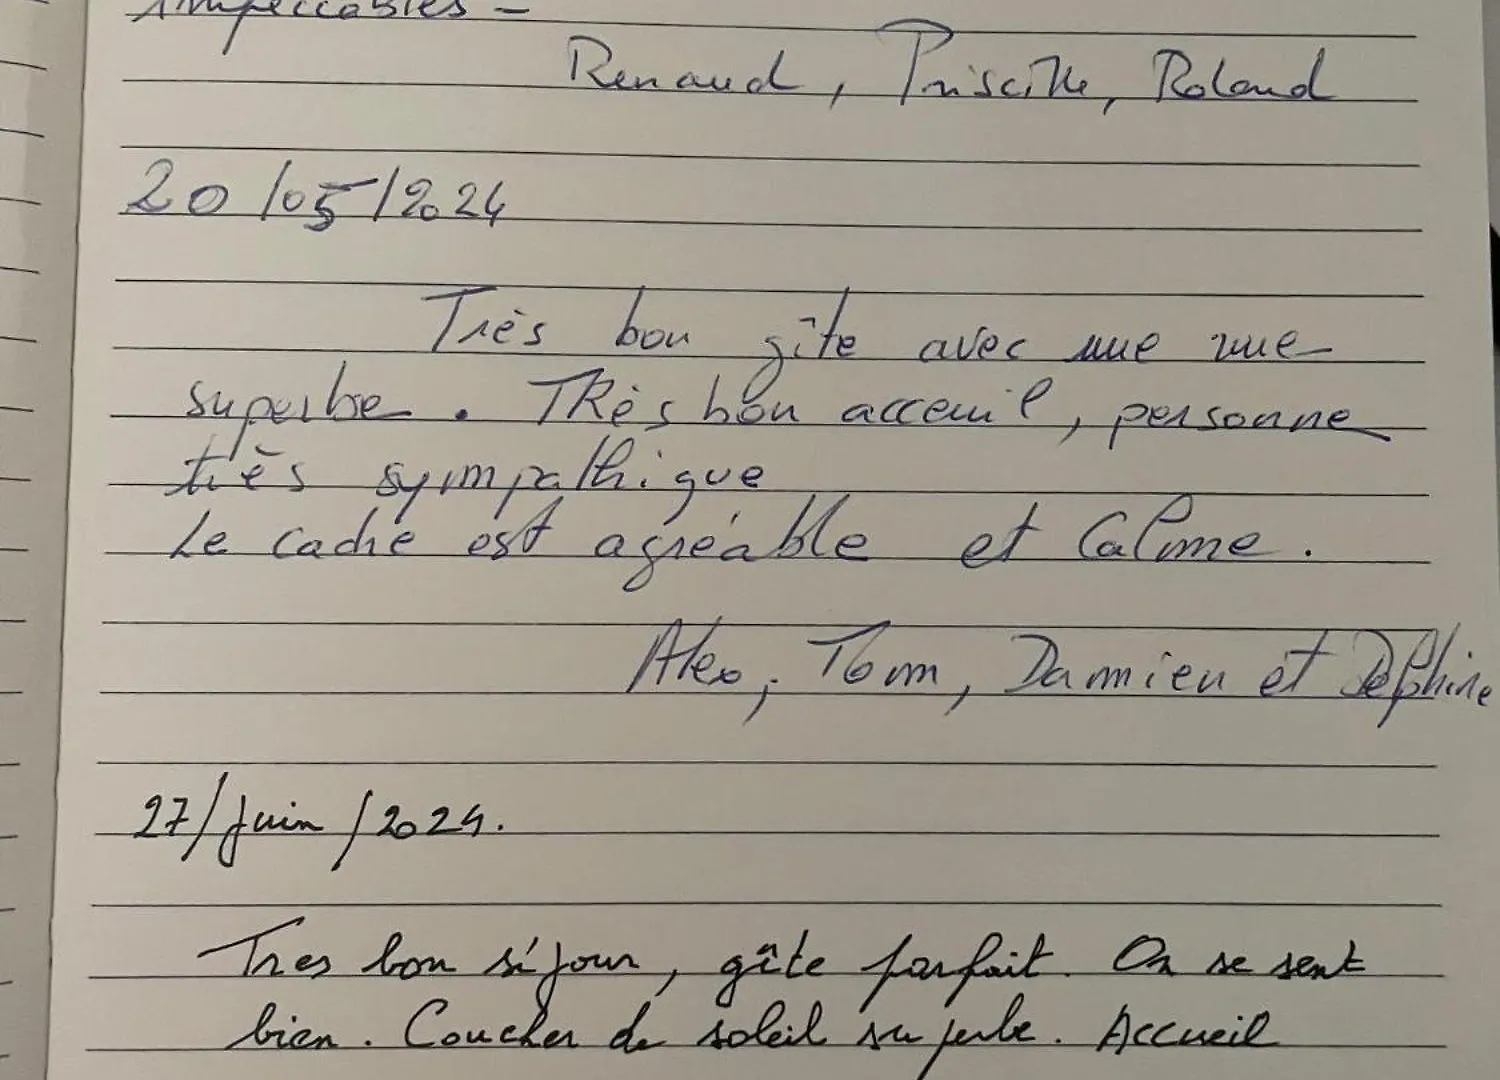 impeccables -
Renaud, Priscille, Roland
20/05/2024
Très bon gîte avec une vue
superbe. TRès bon acceuil, personne
très sympathique
Le cadre est agréable et Calme.
Alex, Tom, Damien et Delphine
27/juin/2024.
Tres bon séjour, gîte parfait. On se sent
bien. Coucher de soleil superbe. Accueil